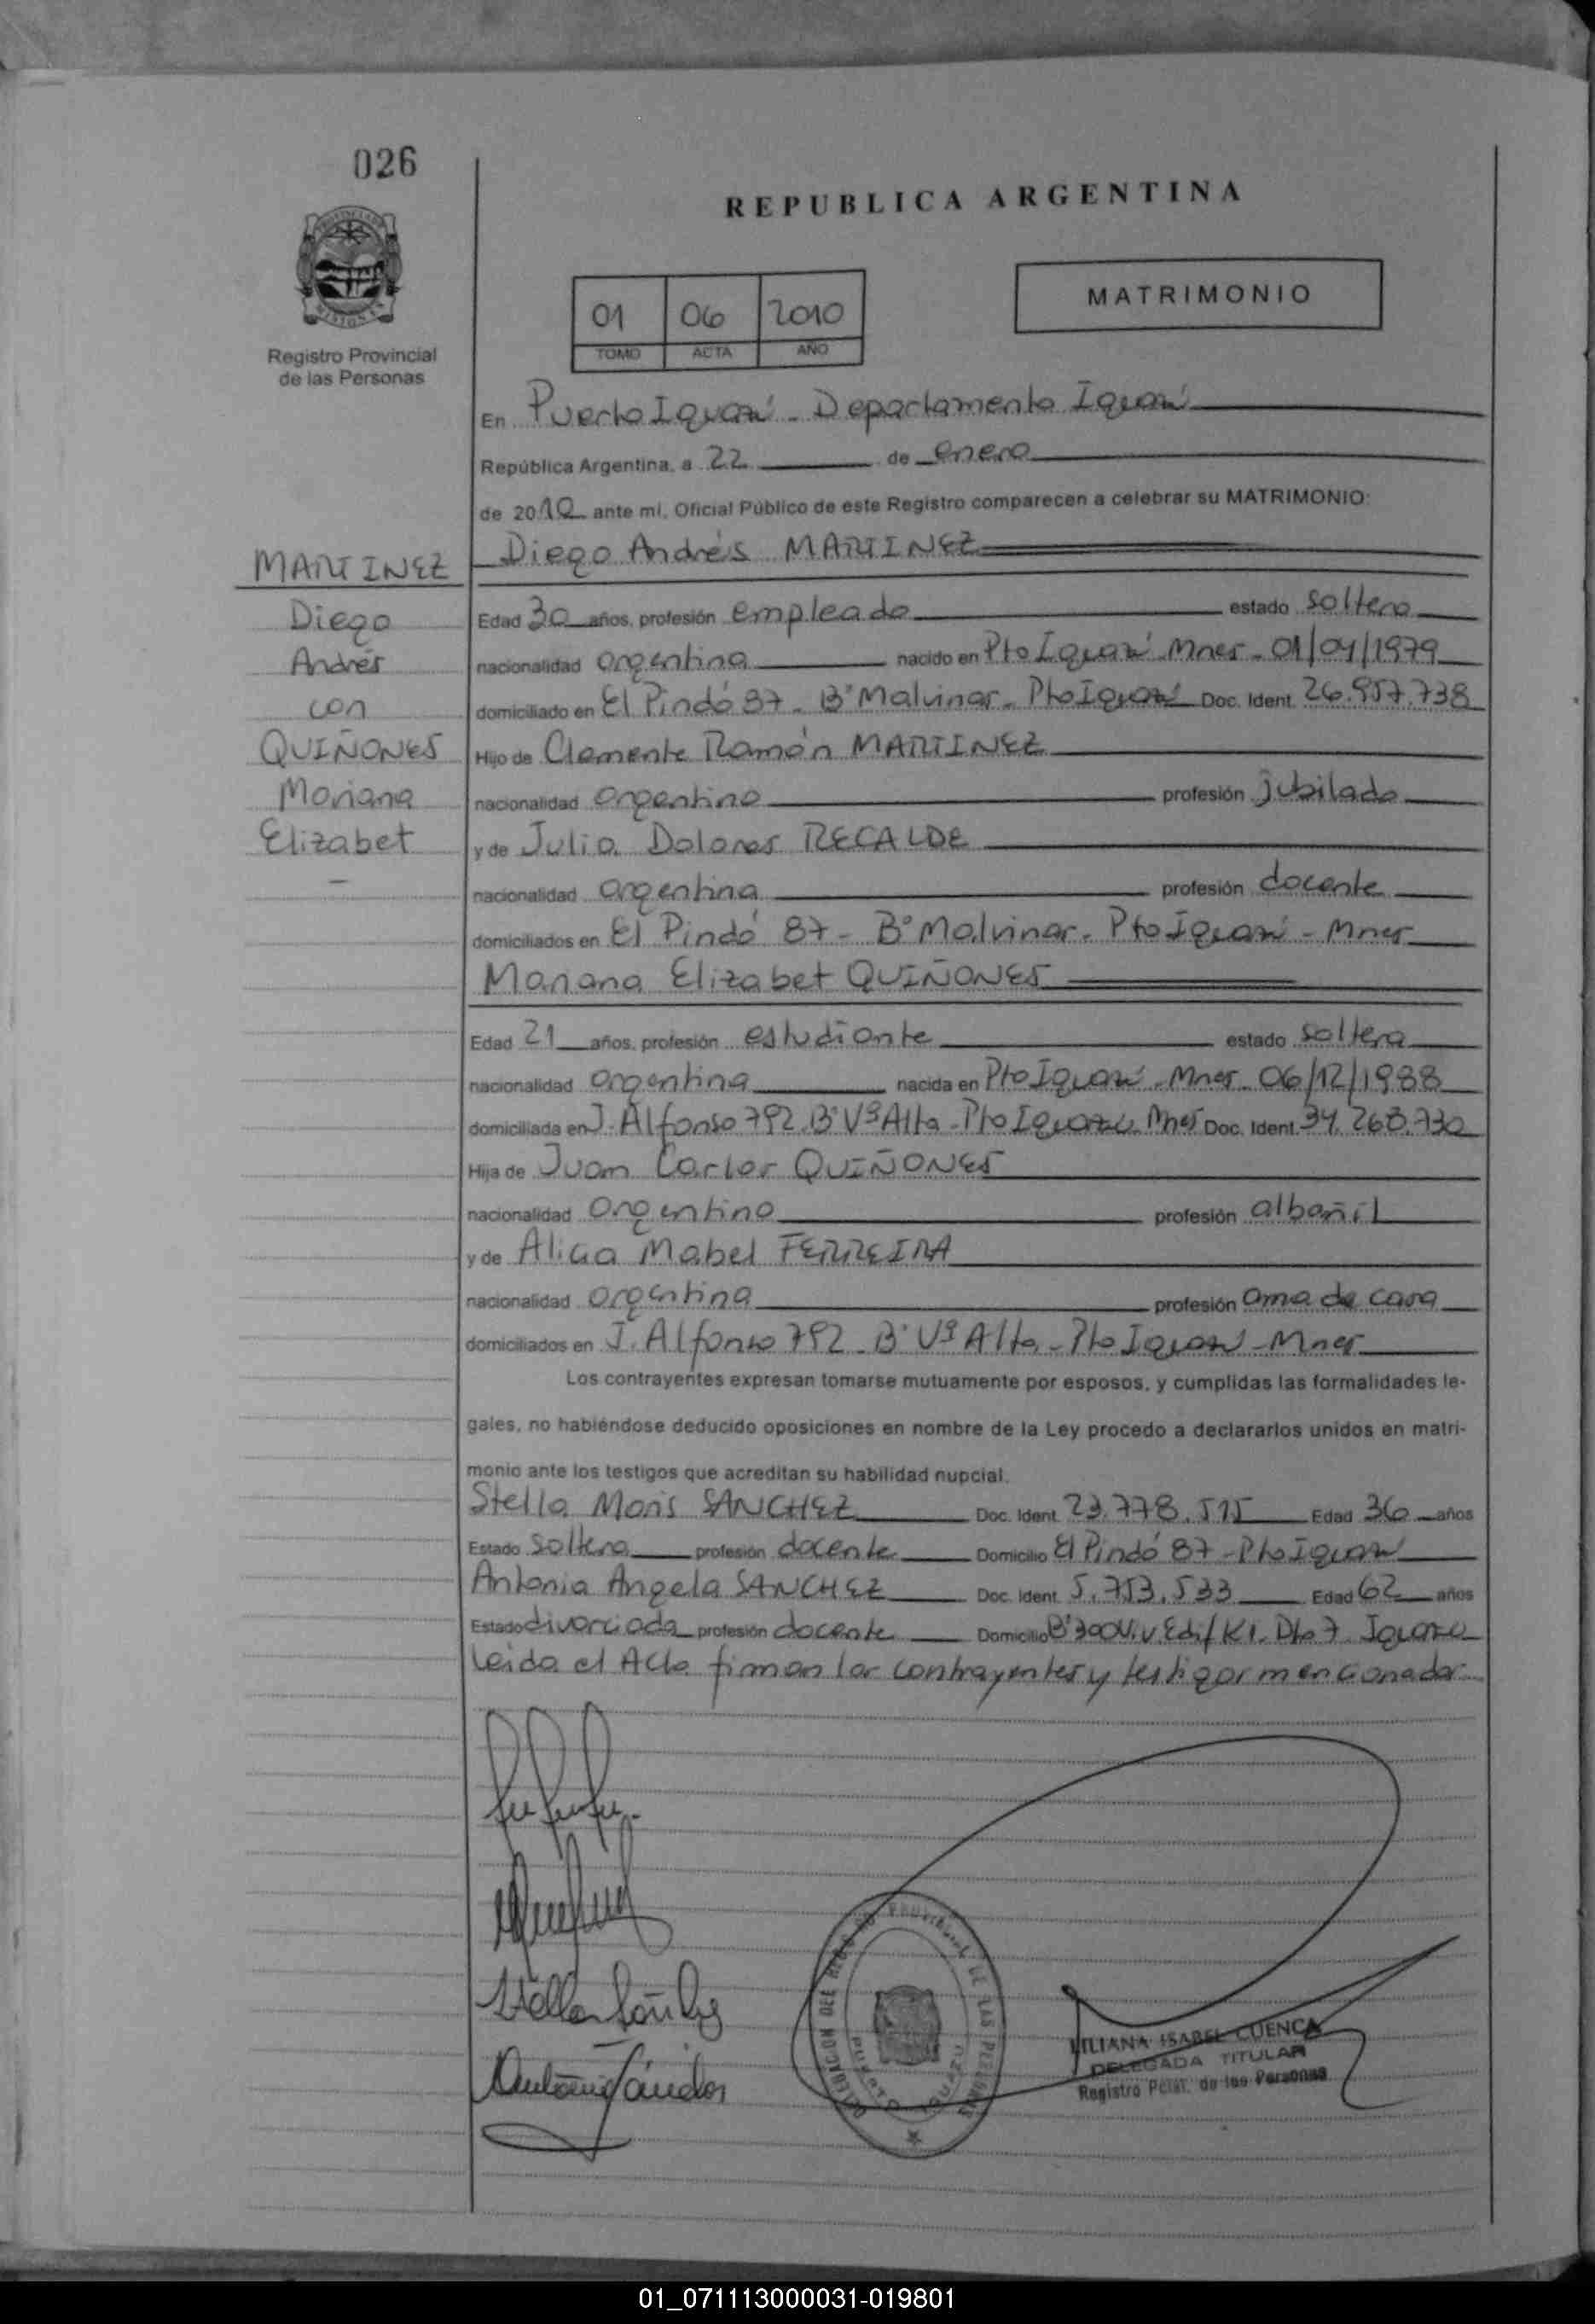 026
REPUBLICA ARGENTINA
01 06 2010
TOMO ACTA AÑO
MATRIMONIO
Registro Provincial
de las Personas
En Puerto Iguazú - Departamento Iguazú
República Argentina, a 22 de enero
de 2010 ante mi, Oficial Público de este Registro comparecen a celebrar su MATRIMONIO:
MARTINEZ
Diego
Andrés
con
QUIÑONES
Mariana
Elizabet
-
Diego Andrés MARTINEZ
Edad 30 años, profesión empleado estado soltero
nacionalidad argentina nacido en Pto Iguazú - Mnes - 01/04/1979
domiciliado en El Pindó 87 - B° Malvinas - Pto Iguazú Doc. Ident. 26.957.738
Hijo de Clemente Ramón MARTINEZ
nacionalidad argentino profesión jubilado
y de Julia Dolores RECALDE
nacionalidad argentina profesión docente
domiciliados en El Pindó 87 - B° Malvinas - Pto Iguazú - Mnes
Mariana Elizabet QUIÑONES
Edad 21 años, profesión estudiante estado soltera
nacionalidad argentina nacida en Pto Iguazú - Mnes - 06/12/1988
domiciliada en J. Alfonso 792 B° Vª Alta - Pto Iguazú Mnes Doc. Ident. 34.260.730
Hija de Juan Carlos QUIÑONES
nacionalidad argentino profesión albañil
y de Alicia Mabel FERREIRA
nacionalidad argentina profesión ama de casa
domiciliados en J. Alfonso 792 - B° Vª Alta - Pto Iguazú - Mnes
Los contrayentes expresan tomarse mutuamente por esposos, y cumplidas las formalidades le-
gales, no habiéndose deducido oposiciones en nombre de la Ley procedo a declararlos unidos en matri-
monio ante los testigos que acreditan su habilidad nupcial.
Stella Maris SANCHEZ Doc. Ident. 23.778.515 Edad 36 años
Estado soltera profesión docente Domicilio El Pindó 87 - Pto Iguazú
Antonia Angela SANCHEZ Doc. Ident. 5.753.533 Edad 62 años
Estado divorciada profesión docente Domicilio B° 300 Viv. Edif K1 - Dto 7 Iguazú
Leida el Acta firman los contrayentes y testigos mencionados.
LILIANA ISABEL CUENCA
DELEGADA TITULAR
Registro Pcial. de las Personas
01_071113000031-019801